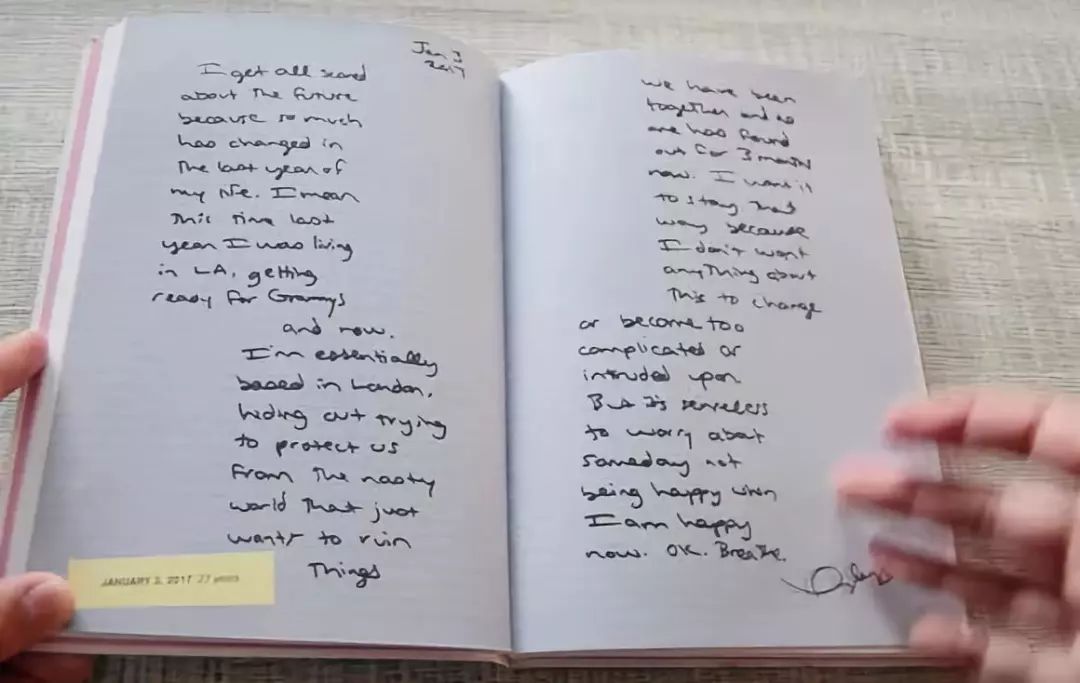 Jan 3
2017
I get all scared
about The future
because so much
has changed in
The last year of
my life. I mean
This time last
year I was living
in LA, getting
ready for Grammys
and now.
I'm essentially
based in London,
hiding out trying
to protect us
from The nasty
world That just
wants to ruin
Things
JANUARY 3, 2017 27 years
we have been
together and no
one has found
out for 3 months
now. I want it
to stay that
way because
I don't want
anything about
This to change
or become too
complicated or
intruded upon.
But it's senseless
to worry about
someday not
being happy when
I am happy
now. OK. Breathe.